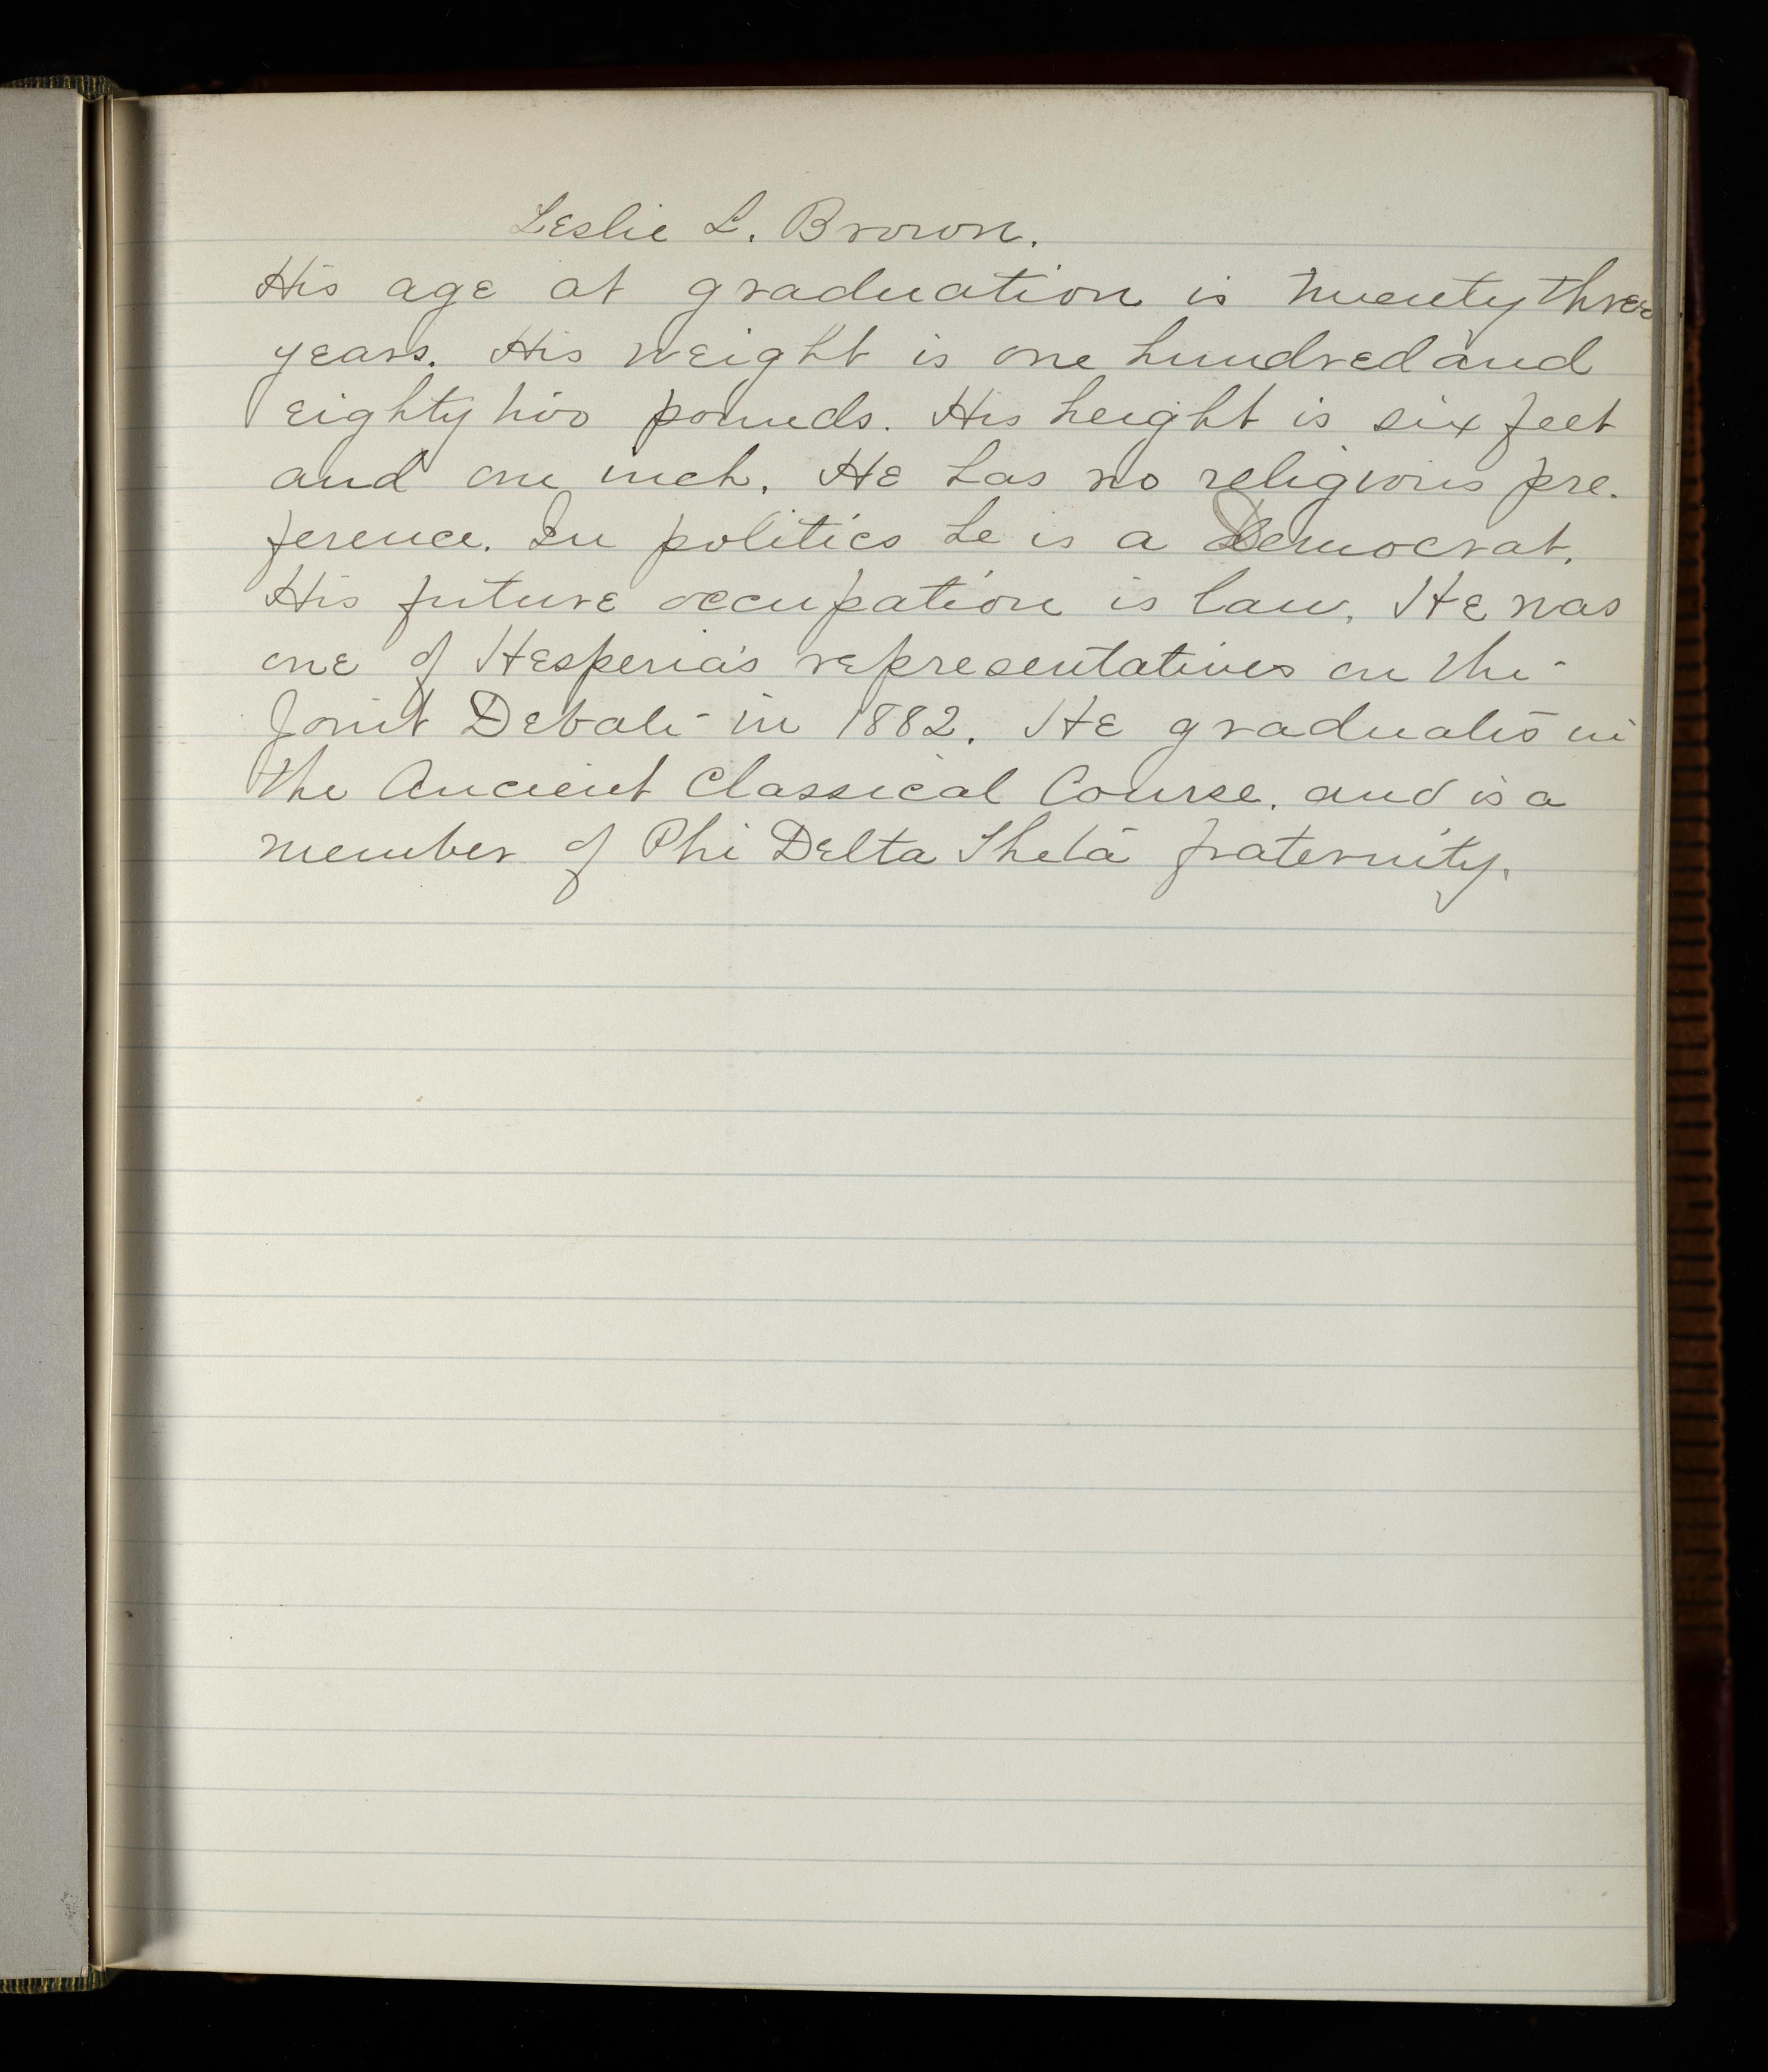 Leslie L. Brown.
His age at graduation is twenty three
years. His weight is one hundred and
eighty two pounds. His height is six feet
and one inch. He has no religious pre-
ference. In politics he is a Democrat.
His future occupation is law. He was
one of Hesperia's representatives on the
Joint Debate in 1882. He graduates in
the Ancient Classical Course. and is a
member of Phi Delta Theta fraternity.